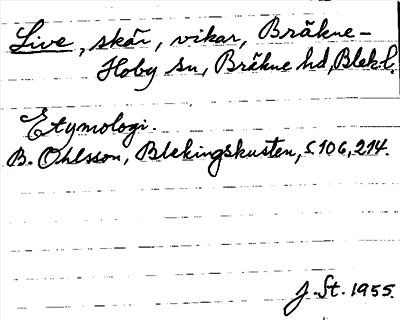 Live, skär, vikar, Bräkne-
Hoby sn, Bräkne hd, Blekl.
Etymologi.
B. Ohlsson, Blekingskusten, s. 106, 214.
J. St. 1955.